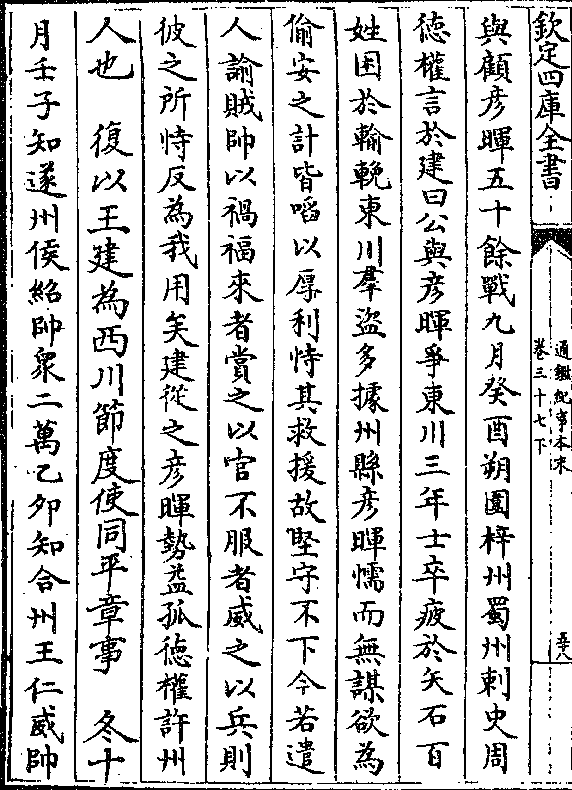 欽定四庫全書
通鑑紀事本末
卷三十七下
與顧彦暉五十餘戰九月癸酉朔圍梓州蜀州刺史周
徳權言於建曰公與彦暉爭東川三年士卒疲於矢石百
姓困於輸輓東川羣盜多據州縣彦暉懦而無謀欲為
偷安之計皆啗以厚利恃其救援故堅守不下今若遣
人諭賊帥以禍福來者賞之以官不服者威之以兵則
彼之所恃反為我用矣建從之彦暉勢益孤徳權許州
人也　復以王建為西川節度使同平章事　冬十
月壬子知遂州侯紹帥衆二萬乙夘知合州王仁威帥